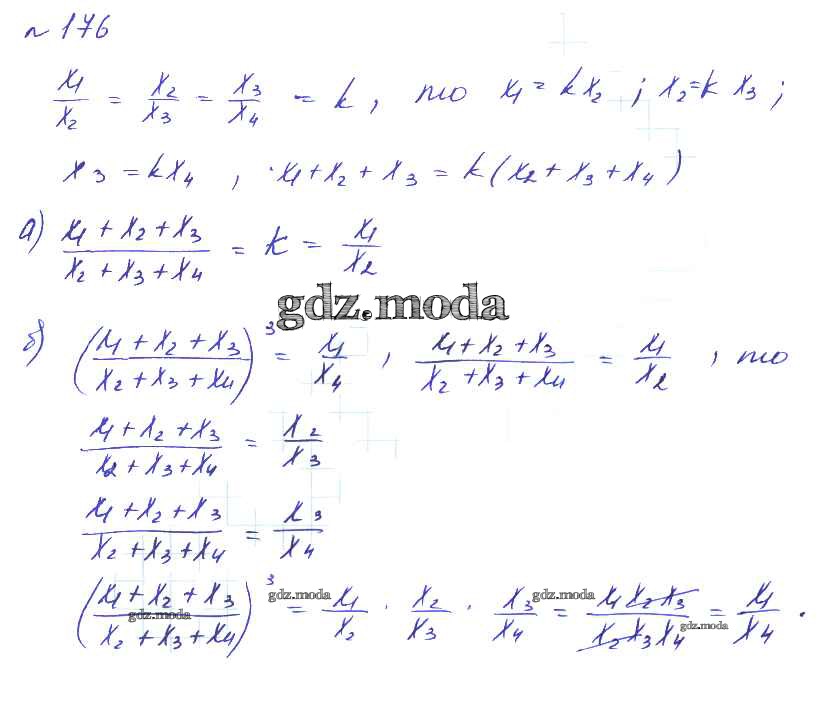 № 176
x₁/x₂ = x₂/x₃ = x₃/x₄ = k, то x₁ = kx₂ ; x₂ = k x₃ ;
x₃ = kx₄ , x₁ + x₂ + x₃ = k(x₂ + x₃ + x₄)
а) (x₁ + x₂ + x₃)/(x₂ + x₃ + x₄) = k = x₁/x₂
gdz.moda
б) ((x₁ + x₂ + x₃)/(x₂ + x₃ + x₄))³ = x₁/x₄ , (x₁ + x₂ + x₃)/(x₂ + x₃ + x₄) = x₁/x₂ , то
(x₁ + x₂ + x₃)/(x₂ + x₃ + x₄) = x₂/x₃
(x₁ + x₂ + x₃)/(x₂ + x₃ + x₄) = x₃/x₄
((x₁ + x₂ + x₃)/(x₂ + x₃ + x₄))³ = x₁/x₂ · x₂/x₃ · x₃/x₄ = x₁x₂x₃/x₂x₃x₄ = x₁/x₄ .
gdz.moda
gdz.moda
gdz.moda
gdz.moda